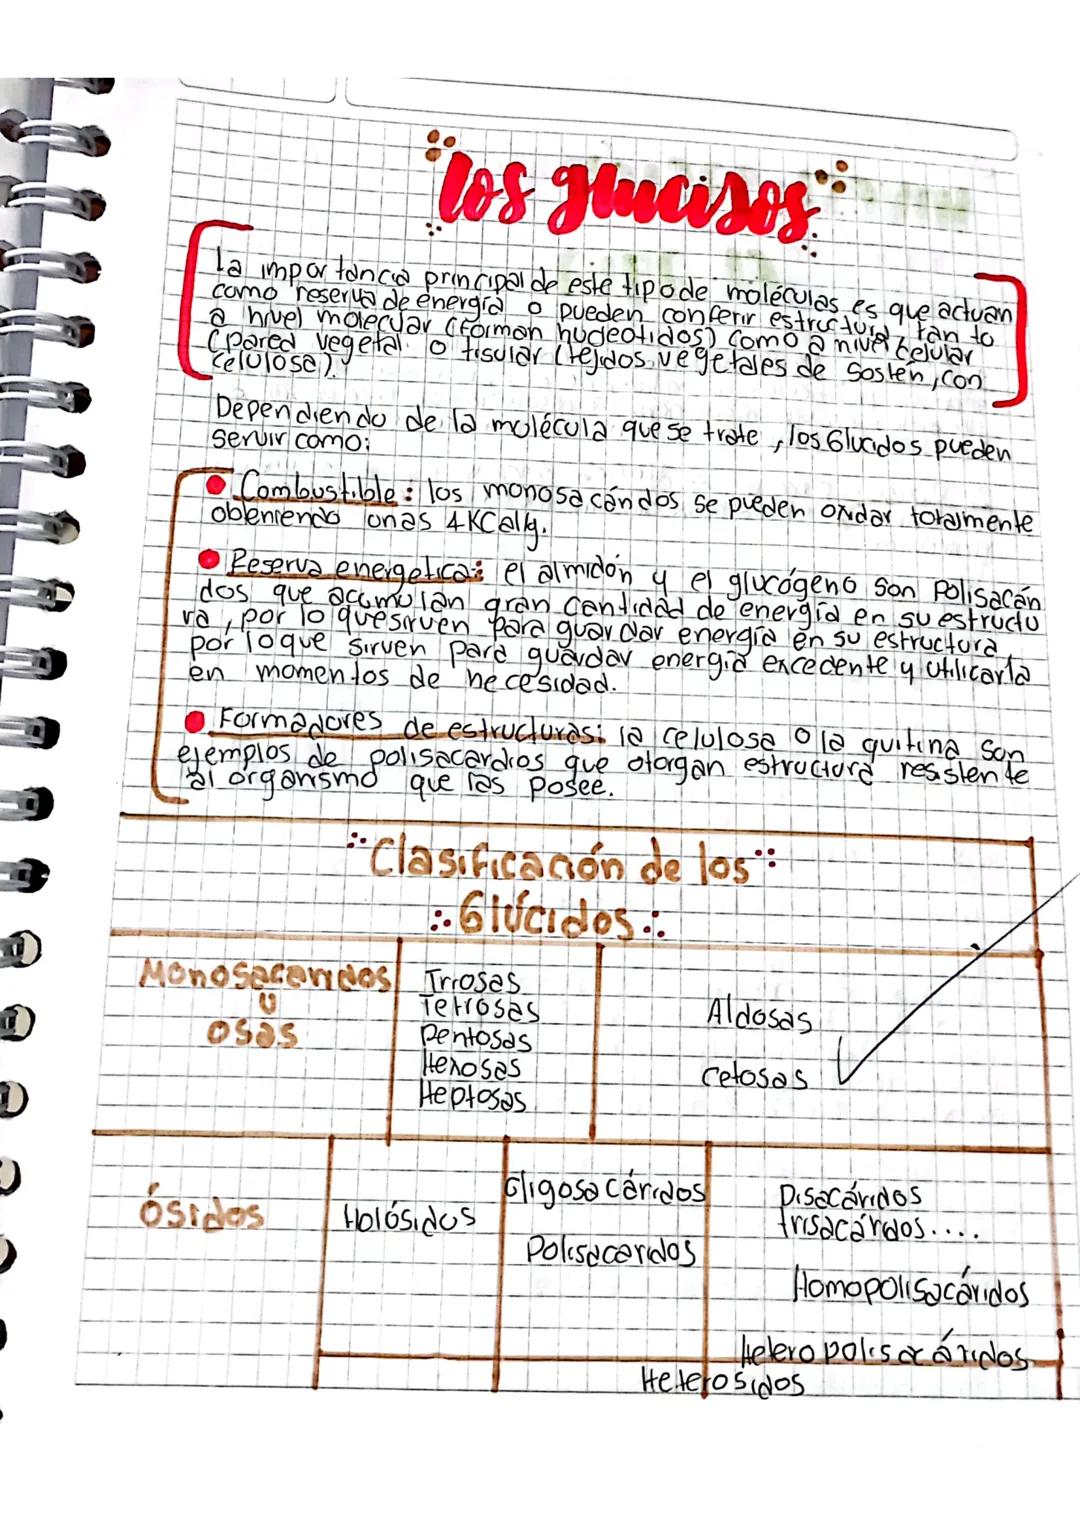 los glucisos
La importancia principal de este tipo de moléculas es que actuan
como reserva de energía o pueden conferir estructura, tan to
a nivel molecular (forman nucleotidos) como a nivel celular
(pared vegetal o tisular (tejidos vegetales de sostén, con
celulosa).
Dependiendo de la molécula que se trate, los Glucidos pueden
servir como:
Combustible: los monosacáridos se pueden oxidar totalmente
obteniendo unas 4KCal/g.
Reserva energetica: el almidón y el glucógeno son Polisacári
dos que acumulan gran cantidad de energía en su estructu
ra, por lo que sirven para guardar energía en su estructura,
por lo que sirven para guardar energía excedente y utilizarla
en momentos de necesidad.
Formadores de estructuras: la celulosa o la quitina son
ejemplos de polisacardios que otorgan estructura resistente
al organismo que las posee.
Clasificación de los
Glúcidos
Monosacaridos
u
osas
Triosas
Tetrosas
Pentosas
Hexosas
Heptosas
Aldosas
cetosas
ósidos
Holósidos
Oligosacáridos
Polisacaridos
Disacáridos
trisacáridos....
Homopolisacáridos
Heteropolisacáridos
Heterosidos